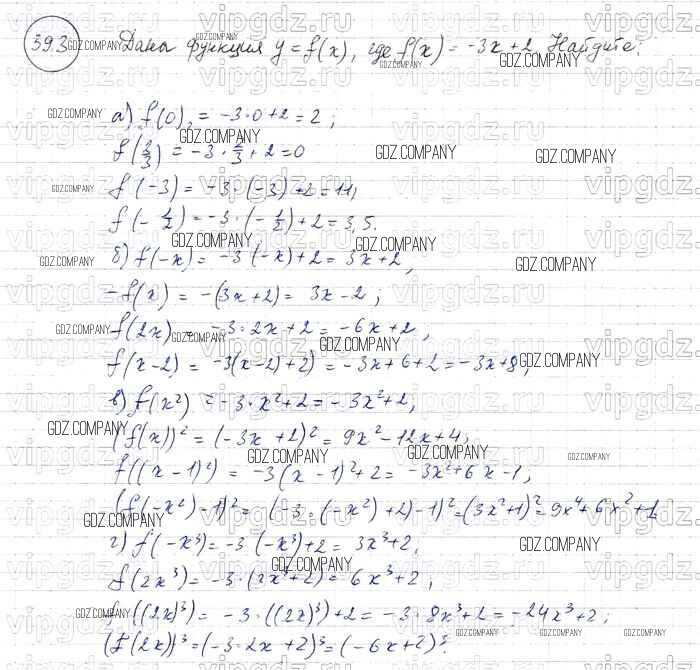 593 Дана функция y = f(x), где f(x) = -3x+2. Найдите:
а) f(0) = -3·0+2 = 2;
f(2/3) = -3·2/3+2 = 0
f(-3) = -3·(-3)+2 = 11;
f(-1/2) = -3·(-1/2)+2 = 3,5.
б) f(-x) = -3·(-x)+2 = 3x+2,
-f(x) = -(3x+2) = 3x-2;
f(2x) = -3·2x+2 = -6x+2,
f(x-2) = -3(x-2)+2) = -3x+6+2 = -3x+8,
в) f(x²) = -3·x²+2 = -3x²+2,
(f(x))² = (-3x+2)² = 9x²-12x+4;
f((x-1)²) = -3(x-1)²+2 = -3x²+6x-1,
(f(-x²)-1)² = (-3·(-x²)+2)-1)² = (3x²+1)² = 9x⁴+6x²+1
г) f(-x³) = -3·(-x³)+2 = 3x³+2,
f(2x³) = -3·(2x³+2) = 6x³+2,
f((2x)³) = -3·((2x)³)+2 = -3·8x³+2 = -24x³+2;
(f(2x))³ = (-3·2x+2)³ = (-6x+2)³.
GDZ.COMPANY
vipgdz.ru